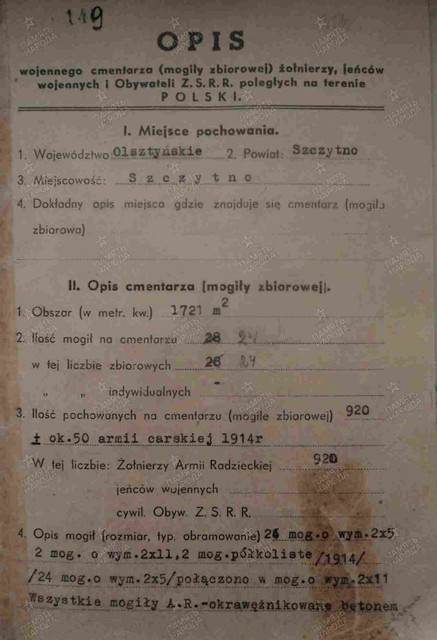 149
OPIS
wojennego cmentarza (mogiły zbiorowej) żołnierzy, jeńców
wojennych i Obywateli Z. S. R. R. poległych na terenie
POLSKI.
I. Miejsce pochowania.
1. Województwo Olsztyńskie 2. Powiat: Szczytno
3. Miejscowość: Szczytno
4. Dokładny opis miejsca gdzie znajduje się cmentarz (mogiła
zbiorowa)
II. Opis cmentarza (mogiły zbiorowej).
1. Obszar (w metr. kw.) 1721 m2
2. Ilość mogił na cmentarzu 24
w tej liczbie zbiorowych 24
„ „ indywidualnych -
3. Ilość pochowanych na cmentarzu (mogile zbiorowej) 920
± ok.50 armii carskiej 1914r
W tej liczbie: Żołnierzy Armii Radzieckiej 920
jeńców wojennych
cywil. Obyw. Z. S. R. R.
4. Opis mogił (rozmiar, typ. obramowanie) 24 mog.o wym.2x5
2 mog. o wym.2x11,2 mog.półkoliste/1914/
/24 mog.o wym.2x5/połączono w mog.o wym.2x11
Wszystkie mogiły A.R.-okrawężnikowane betonem